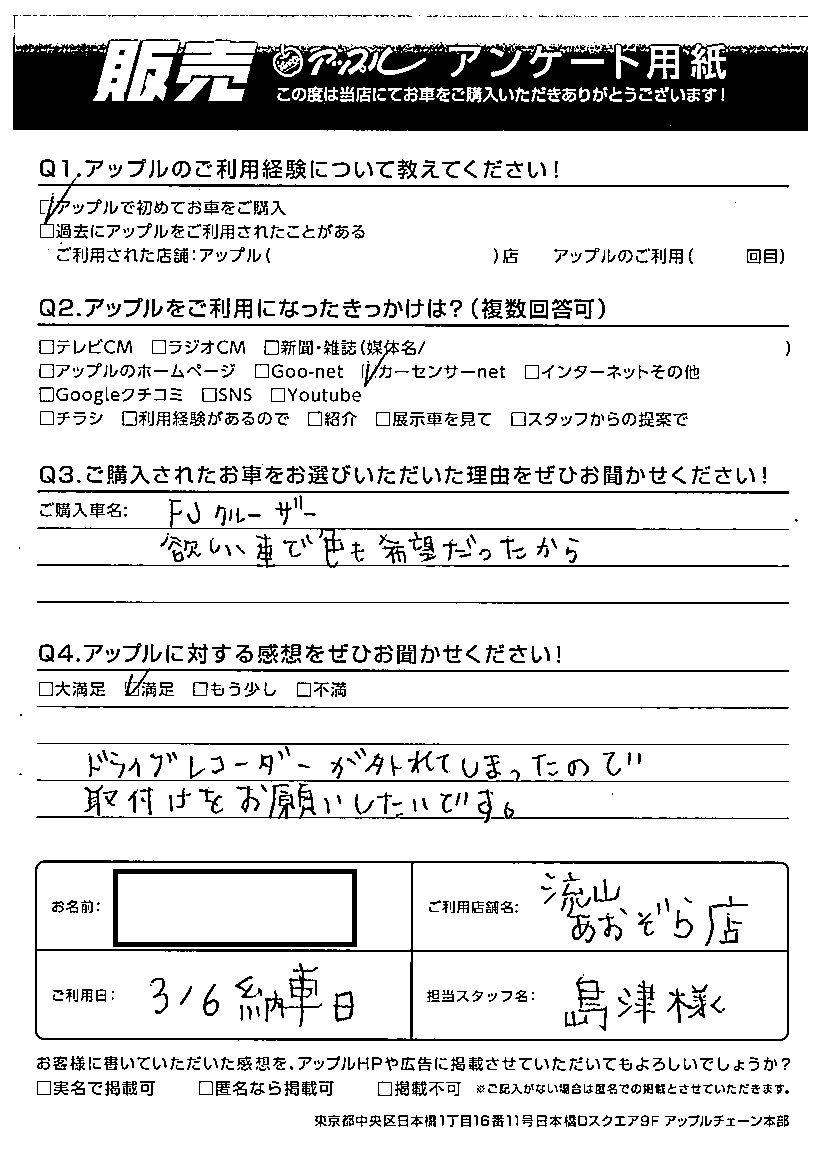 販売 アップル アンケート用紙
この度は当店にてお車をご購入いただきありがとうございます!
Q1.アップルのご利用経験について教えてください!
☑アップルで初めてお車をご購入
□過去にアップルをご利用されたことがある
ご利用された店舗:アップル( )店 アップルのご利用( 回目)
Q2.アップルをご利用になったきっかけは?(複数回答可)
□テレビCM □ラジオCM □新聞・雑誌(媒体名/ )
□アップルのホームページ □Goo-net ☑カーセンサーnet □インターネットその他
□Googleクチコミ □SNS □Youtube
□チラシ □利用経験があるので □紹介 □展示車を見て □スタッフからの提案で
Q3.ご購入されたお車をお選びいただいた理由をぜひお聞かせください!
ご購入車名: FJクルーザー
欲しい車で色も希望だったから
Q4.アップルに対する感想をぜひお聞かせください!
□大満足 ☑満足 □もう少し □不満
ドライブレコーダーが外れてしまったので
取付けをお願いしたいです。
お名前:
ご利用店舗名: 流山
あおぞら店
ご利用日: 3/6 納車日
担当スタッフ名: 島津様
お客様に書いていただいた感想を、アップルHPや広告に掲載させていただいてもよろしいでしょうか?
□実名で掲載可 □匿名なら掲載可 □掲載不可 ※ご記入がない場合は匿名での掲載とさせていただきます。
東京都中央区日本橋1丁目16番11号日本橋Dスクエア9F アップルチェーン本部